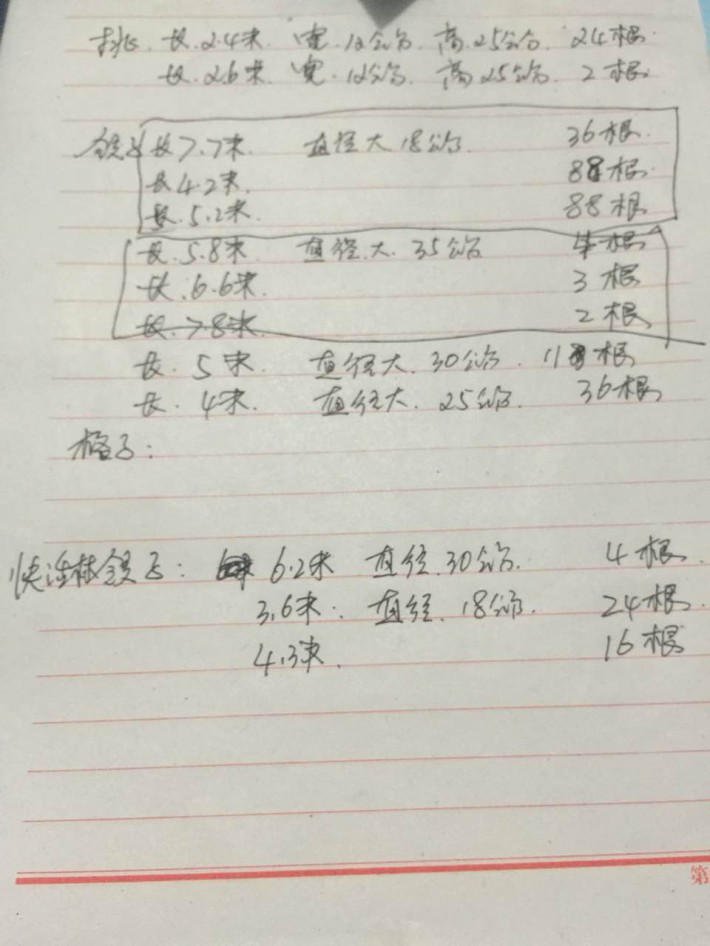 挑. 长.2.4米. 宽.12公分. 高.25公分. 24根.
长.2.6米. 宽.12公分. 高25公分. 2根.
长7.7米. 直径大18公分 36根.
长4.2米. 88根.
长.5.2米. 88根
长.5.8米 直径.大.35公分 4根
长.6.6米. 3根
长.7.8米. 2根
长. 5米. 直径大.30公分. 11根
长. 4米. 直径大.25公分. 36根
格子:
6.2米 直径.30公分. 4根.
3.6米. 直径.18公分. 24根.
4.3米. 16根
第